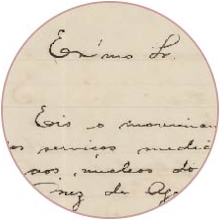 Ex.mo Sr.
Eis o movimen
os serviços medic
aos nucleos do
mez de Ag